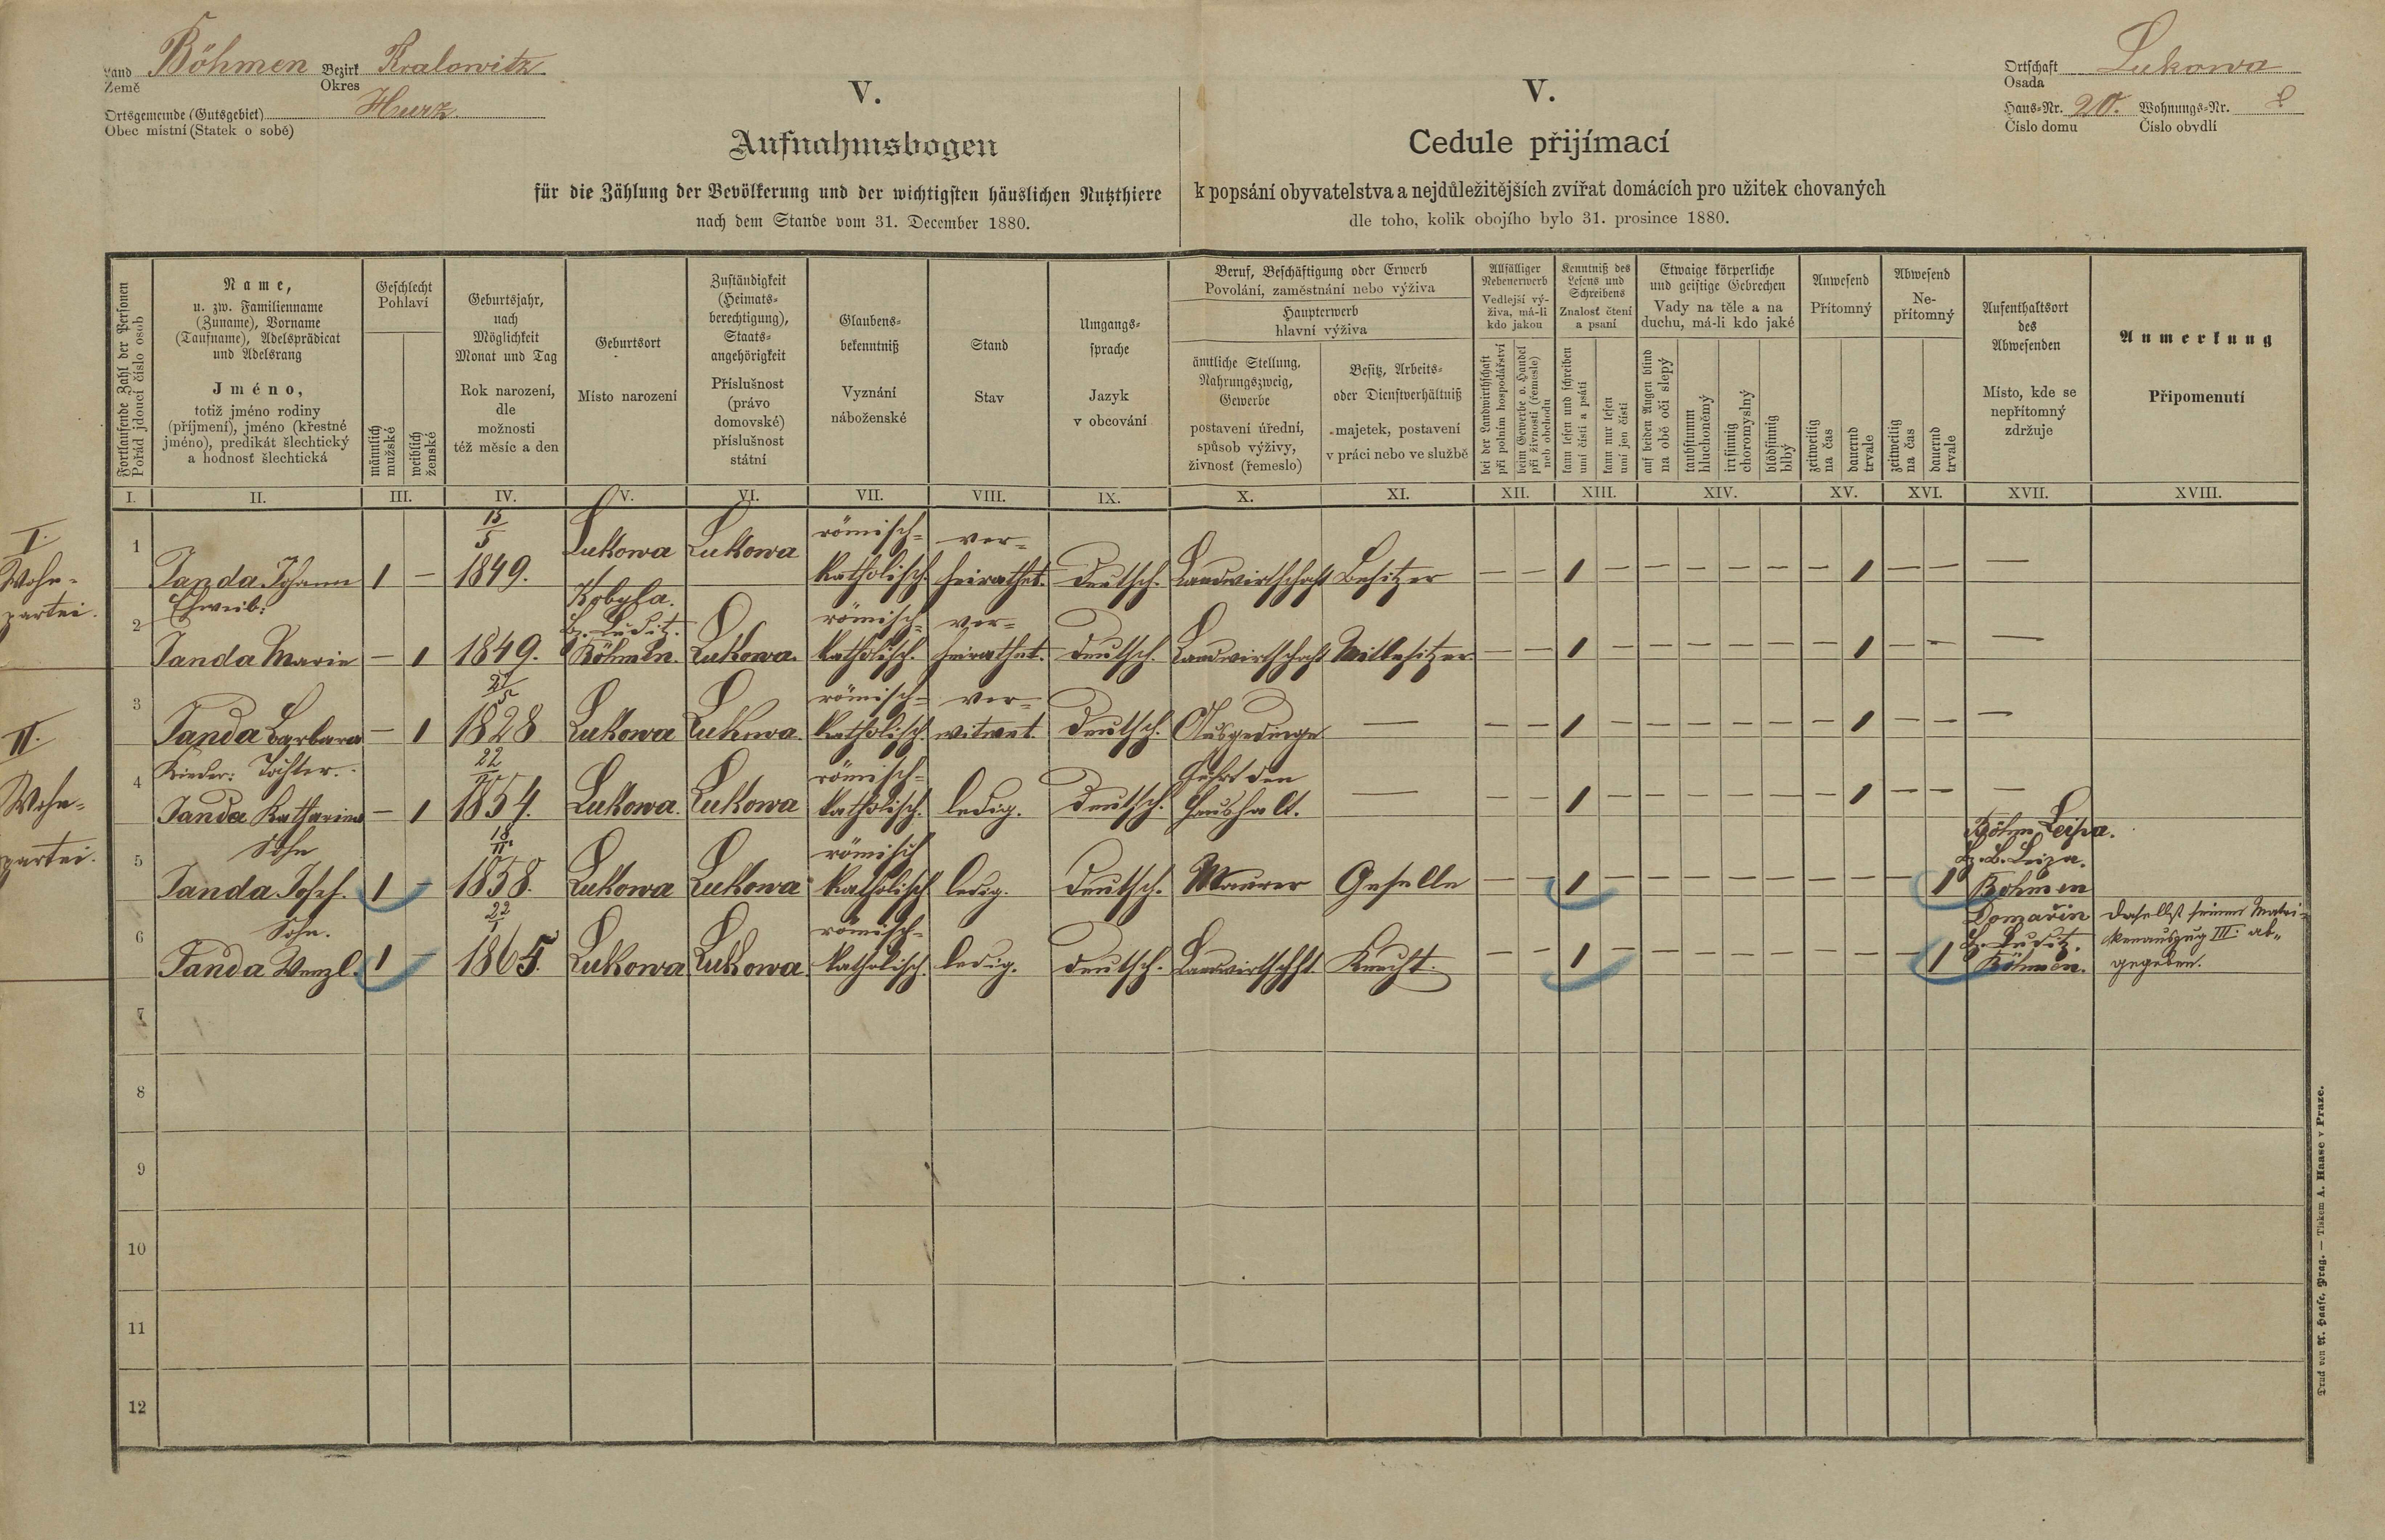 Land Böhmen Bezirk Kralowitz
Země Okres
Ortsgemeinde (Gutsgebiet) Hurz
Obec místní (Statek o sobě)
V.
Aufnahmsbogen
für die Zählung der Bevölkerung und der wichtigsten häuslichen Nutzthiere
nach dem Stande vom 31. December 1880.
V.
Cedule přijímací
k popsání obyvatelstva a nejdůležitějších zvířat domácích pro užitek chovaných
dle toho, kolik obojího bylo 31. prosince 1880.
Ortschaft Lukowa
Osada
Haus-Nr. 20. Wohnungs-Nr.
Číslo domu Číslo obydlí
Fortlaufende Zahl der Personen
Pořád jdoucí číslo osob
Name,
u. zw. Familienname
(Zuname), Vorname
(Taufname), Adelsprädicat
und Adelsrang
Jméno,
totiž jméno rodiny
(příjmení), jméno (křestné
jméno), predikát šlechtický
a hodnosť šlechtická
Geschlecht
Pohlaví
männlich
mužské
weiblich
ženské
Geburtsjahr,
nach
Möglichkeit
Monat und Tag
Rok narození,
dle
možnosti
též měsíc a den
Geburtsort
Místo narození
Zuständigkeit
(Heimats-
berechtigung),
Staats-
angehörigkeit
Příslušnost
(právo
domovské)
příslušnost
státní
Glaubens-
bekenntniß
Vyznání
náboženské
Stand
Stav
Umgangs-
sprache
Jazyk
v obcování
Beruf, Beschäftigung oder Erwerb
Povolání, zaměstnání nebo výživa
Haupterwerb
hlavní výživa
ämtliche Stellung,
Nahrungszweig,
Gewerbe
postavení úřední,
spůsob výživy,
živnosť (řemeslo)
Besitz, Arbeits-
oder Dienstverhältniß
majetek, postavení
v práci nebo ve službě
Allfälliger
Nebenerwerb
Vedlejší vý-
živa, má-li
kdo jakou
bei der Landwirthschaft
při polním hospodářství
beim Gewerbe o. Handel
při živnosti (řemesle)
neb obchodu
Kenntniß des
Lesens und
Schreibens
Znalosť čtení
a psaní
kann lesen und schreiben
umí čísti a psáti
kann nur lesen
umí jen čísti
Etwaige körperliche
und geistige Gebrechen
Vady na těle a na
duchu, má-li kdo jaké
auf beiden Augen blind
na obě oči slepý
taubstumm
hluchoněmý
irrsinnig
choromyslný
blödsinnig
blbý
Anwesend
Přítomný
zeitweilig
na čas
dauernd
trvale
Abwesend
Ne-
přítomný
zeitweilig
na čas
dauernd
trvale
Aufenthaltsort
des
Abwesenden
Místo, kde se
nepřítomný
zdržuje
Anmerkung
Připomenutí
I. II. III. IV. V. VI. VII. VIII. IX. X. XI. XII. XIII. XIV. XV. XVI. XVII. XVIII.
I.
Wohn-
partei.
15/5 römisch- ver-
1 Janda Johann 1 – 1849. Lukowa Lukowa katholisch. heirathet. deutsch. Landwirthschaft Besitzer – – 1 – – – – – – 1 – – –
Eheweib: Kobyla. römisch- ver-
Bz. Luditz.
2 Janda Marie – 1 1849. Böhmen. Lukowa. katholisch. heirathet. deutsch. Landwirthschaft Mitbesitzer – – 1 – – – – – – 1 – – –
II.
Wohn-
partei.
römisch- ver-
3 Janda Barbara – 1 1828 Lukowa Lukowa. katholisch. witwet. deutsch. Ausgedinge – – – 1 – – – – – – 1 – – –
Kinder: Tochter. 22 römisch- führt den
4 Janda Katharina – 1 1854. Lukowa. Lukowa katholisch. ledig. deutsch. Haushalt. – – – 1 – – – – – – 1 – – –
Sohn 18 römisch Böhm Leipa.
Bz. B. Leipa.
5 Janda Josef. 1 – 1858. Lukowa Lukowa katholisch ledig. deutsch. Maurer Geselle – – 1 – – – – – – – – 1 Böhmen
Sohn. 22/1 römisch- Domařin daselbst seinen Matri-
Bz. Luditz. kenauszug III. ab-
6 Janda Wenzl. 1 – 1865. Lukowa Lukowa katholisch ledig. deutsch. Landwirtschft Knecht. – – 1 – – – – – – – – 1 Böhmen. gegeben.
7
8
9
10
11
12
Druck von A. Haase, Prag. — Tiskem A. Haase v Praze.